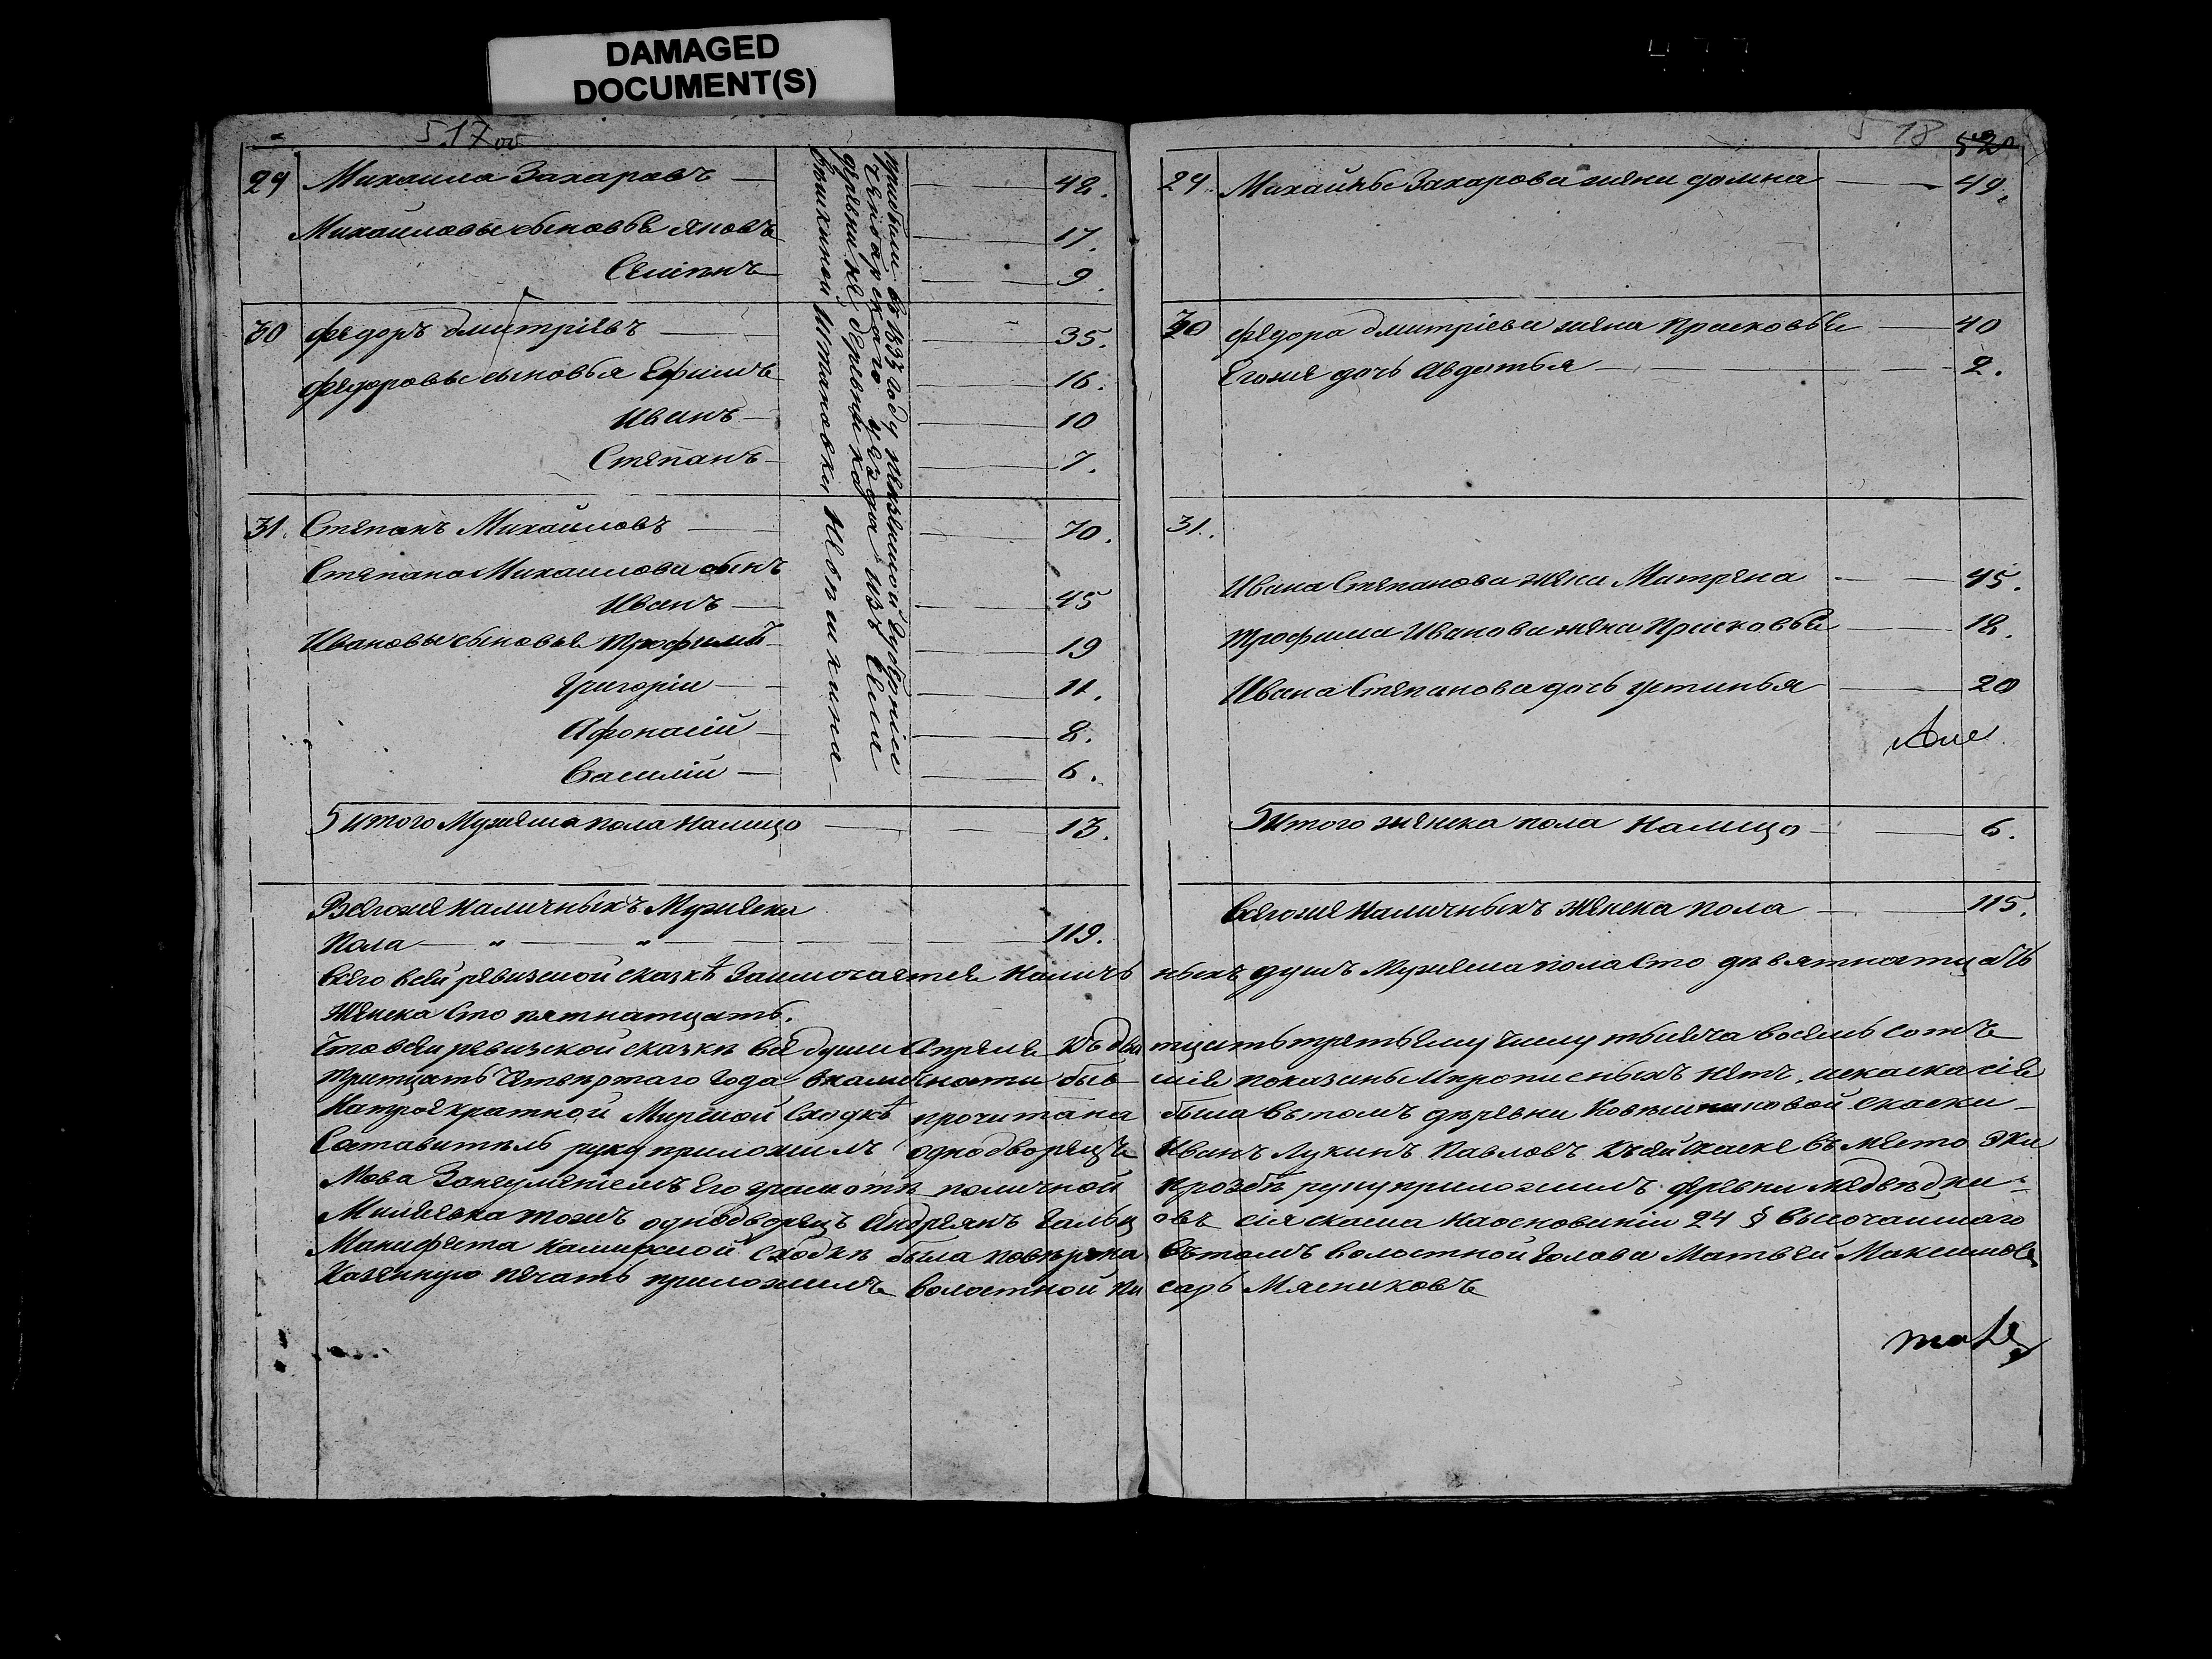 DAMAGED
DOCUMENT(S)
517 об
29 Михаила Захаровъ — 48.
Михайловы сыновья Яковъ — 17.
Семіонъ — 9.
30 Федоръ Дмитріевъ — 35.
Федоровы сыновья Ефимъ — 16.
Иванъ — 10
Степанъ — 7.
31. Степанъ Михайловъ — 70.
Степана Михаилова сынъ
Иванъ — 45
Ивановы сыновья Трофимъ — 19
Григоріи — 11.
Афонасій — 8.
Василіи — 6.
прибыли въ 1833 году Пензенской Губерніи
уезда изъ Села
деревни
5 Итого Мужеска пола налицо — 13.
Всегоже наличныхъ Мужеска
Пола — " — " — 119.
518 52
29. Михайлы Захарова жена Домна — 49.
30 Федора Дмитріева жена Прасковья — 40
Егоже дочь Авдотья — 2.
31.
Ивана Степанова жена Матрена — 45.
Трофима Иванова жена Прасковья — 18.
Ивана Степанова дочь Устинья — 20
5 Итого женска пола налицо — 6.
Всегоже наличныхъ женска пола — 115.
Всего всей ревизской сказкѣ Заключается наличныхъ душъ Мужеска пола Сто девятнатцать
Женска Сто пятнатцать.
Что всей ревизской сказкѣ всѣ души Апреля къ двадтцать третьему числу тысяча восемь сотъ
тритцать Четвертаго Года вналичности бывшіе показаны и прописныхъ нетъ, искаска сіе
Натроекратной Мирской Сходкѣ прочитана была вътомъ деревни скаски
Составитель руку приложилъ однодворецъ Иванъ Лукинъ Павловъ къ сей скаске въместо
Его грамотѣ поличной прозбѣ руку приложилъ деревни
тожъ однодворецъ Андреянъ сія скаска наосновании 24 § Высочаишаго
Манифеста намирской Сходкѣ была поверена вътомъ волостной Голова Матвей Максимовъ
Казенную печать приложилъ волостной писарь Мясниковъ